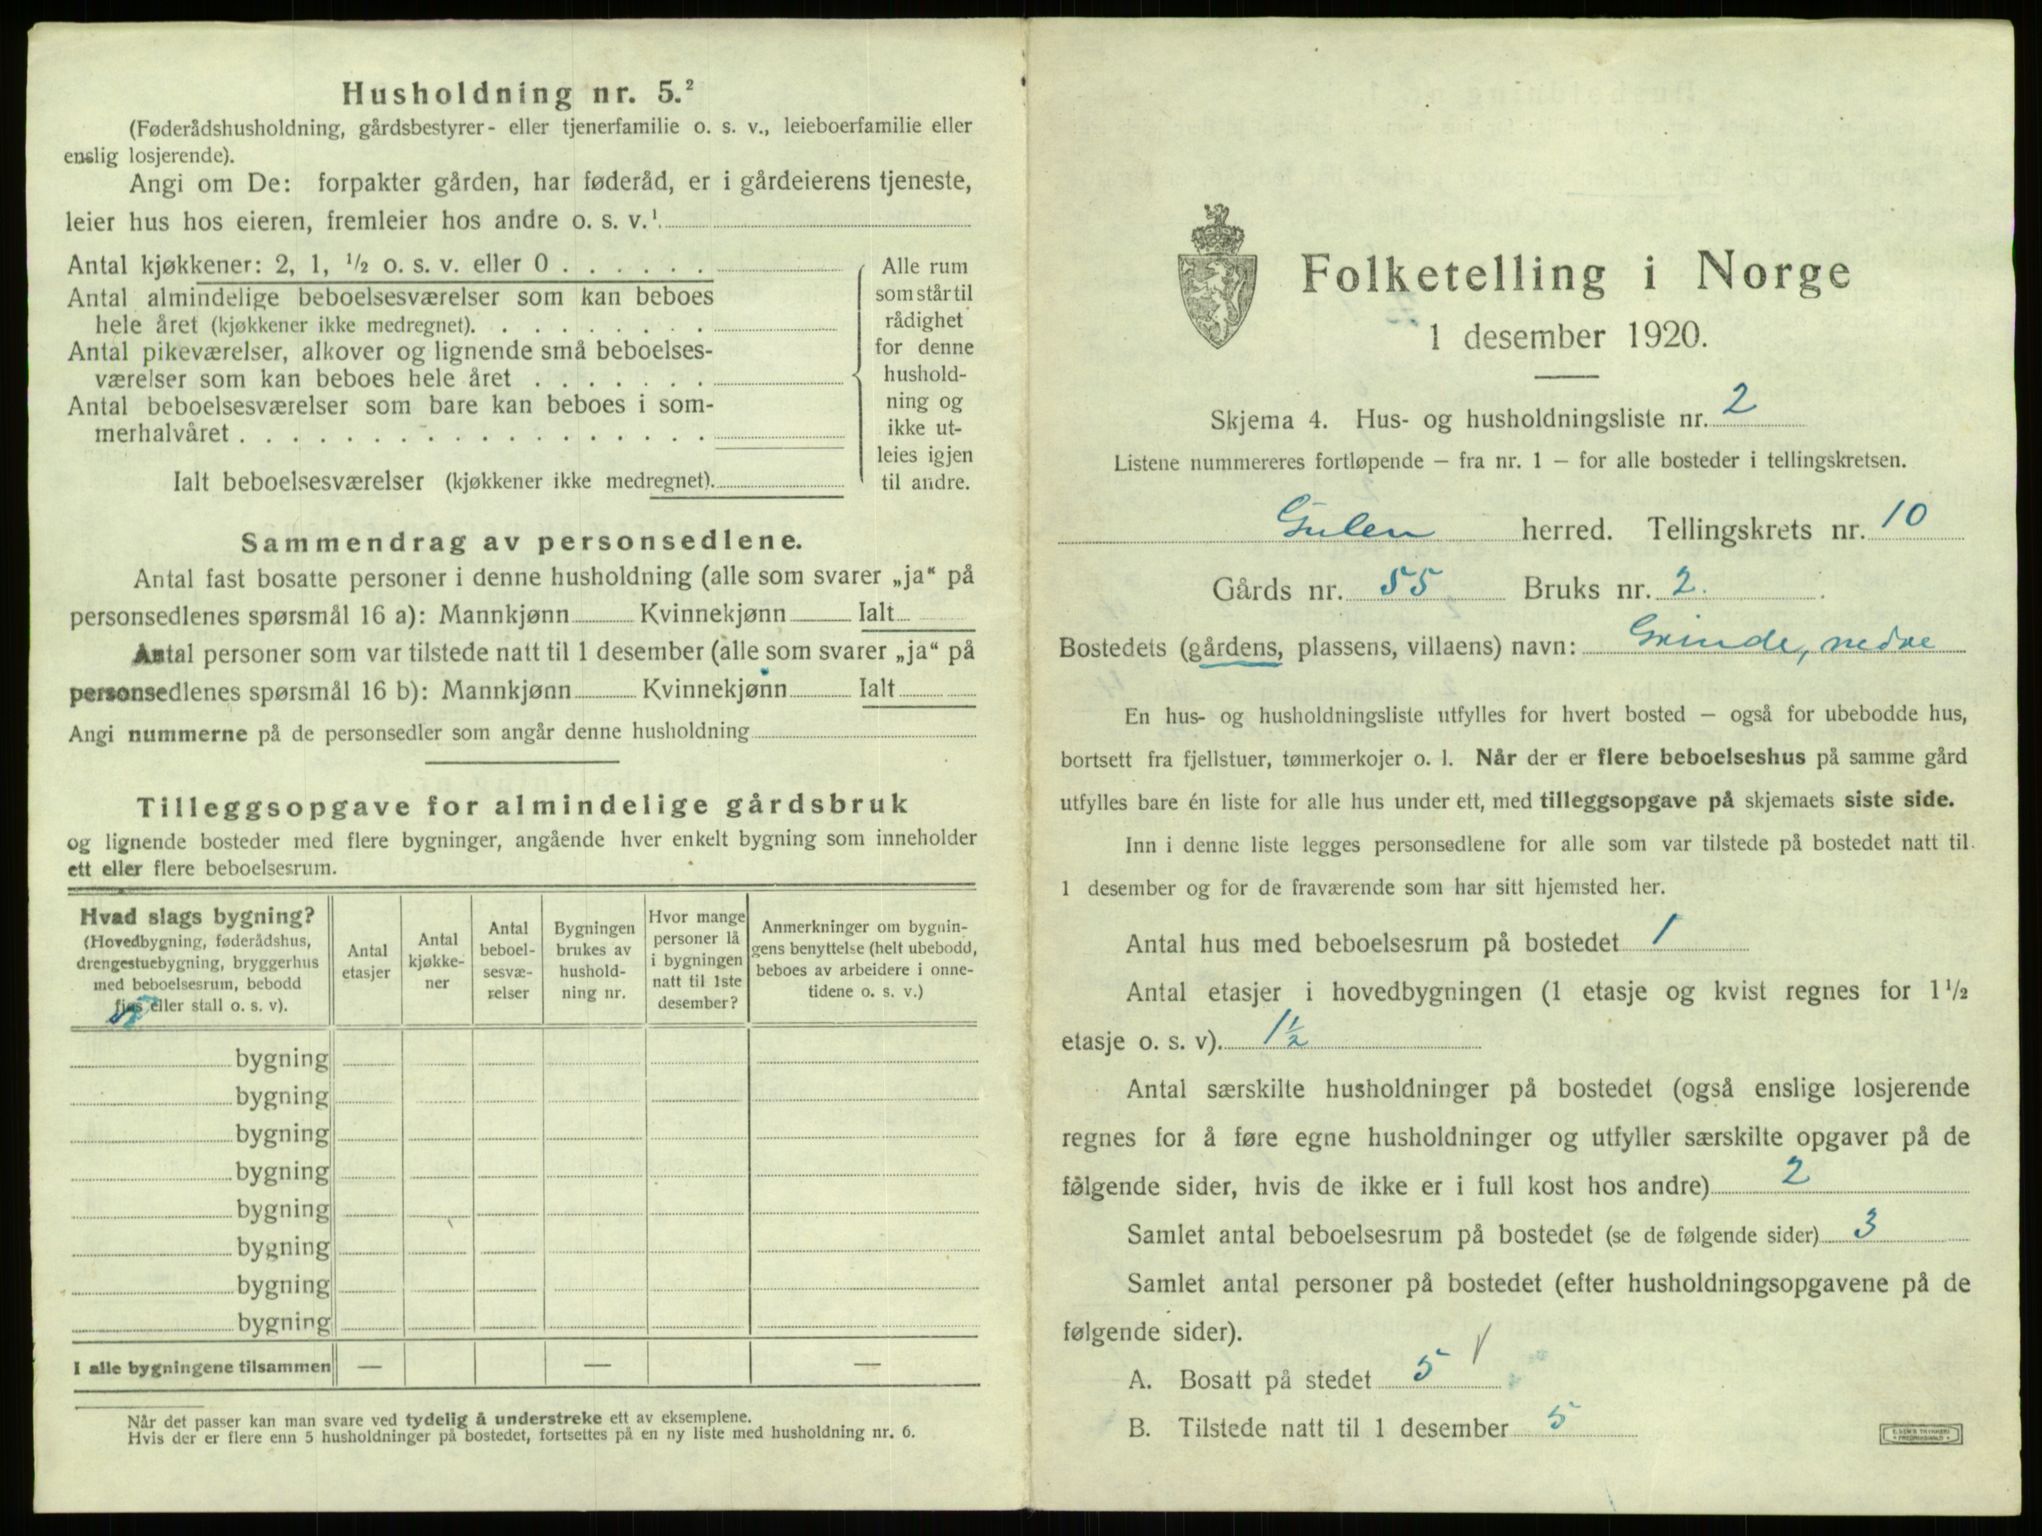 Husholdning nr. 5.²
(Føderådshusholdning, gårdsbestyrer- eller tjenerfamilie o. s. v., leieboerfamilie eller
enslig losjerende).
Angi om De: forpakter gården, har føderåd, er i gårdeierens tjeneste,
leier hus hos eieren, fremleier hos andre o. s. v.¹
Antal kjøkkener: 2, 1, ½ o. s. v. eller 0 . . . . . .
Antal almindelige beboelsesværelser som kan beboes
hele året (kjøkkener ikke medregnet). . . . . . . . .
Antal pikeværelser, alkover og lignende små beboelses-
værelser som kan beboes hele året . . . . . . .
Antal beboelsesværelser som bare kan beboes i som-
merhalvåret . . . . . . . . . . . . . . . . . .
Ialt beboelsesværelser (kjøkkener ikke medregnet).
Alle rum
som står til
rådighet
for denne
hushold-
ning og
ikke ut-
leies igjen
til andre.
Sammendrag av personsedlene.
Antal fast bosatte personer i denne husholdning (alle som svarer „ja“ på
personsedlenes spørsmål 16 a): Mannkjønn Kvinnekjønn Ialt
Antal personer som var tilstede natt til 1 desember (alle som svarer „ja“ på
personsedlenes spørsmål 16 b): Mannkjønn Kvinnekjønn Ialt
Angi nummerne på de personsedler som angår denne husholdning
Tilleggsopgave for almindelige gårdsbruk
og lignende bosteder med flere bygninger, angående hver enkelt bygning som inneholder
ett eller flere beboelsesrum.
Hvad slags bygning?
(Hovedbygning, føderådshus,
drengestuebygning, bryggerhus
med beboelsesrum, bebodd
fjøs eller stall o. s. v).
Antal
etasjer
Antal
kjøkke-
ner
Antal
beboel-
sesvæ-
relser
Bygningen
brukes av
hushold-
ning nr.
Hvor mange
personer lå
i bygningen
natt til 1ste
desember?
Anmerkninger om bygnin-
gens benyttelse (helt ubebodd,
beboes av arbeidere i onne-
tidene o. s. v.)
bygning
bygning
bygning
bygning
bygning
bygning
bygning
bygning
I alle bygningene tilsammen — — —
Når det passer kan man svare ved tydelig å understreke ett av eksemplene.
Hvis der er flere enn 5 husholdninger på bostedet, fortsettes på en ny liste med husholdning nr. 6.
Folketelling i Norge
1 desember 1920.
Skjema 4. Hus- og husholdningsliste nr. 2
Listene nummereres fortløpende – fra nr. 1 – for alle bosteder i tellingskretsen.
Gulen herred. Tellingskrets nr. 10
Gårds nr. 55 Bruks nr. 2.
Bostedets (gårdens, plassens, villaens) navn: Grinde, nedre
En hus- og husholdningsliste utfylles for hvert bosted – også for ubebodde hus,
bortsett fra fjellstuer, tømmerkojer o. l. Når der er flere beboelseshus på samme gård
utfylles bare én liste for alle hus under ett, med tilleggsopgave på skjemaets siste side.
Inn i denne liste legges personsedlene for alle som var tilstede på bostedet natt til
1 desember og for de fraværende som har sitt hjemsted her.
Antal hus med beboelsesrum på bostedet 1
Antal etasjer i hovedbygningen (1 etasje og kvist regnes for 1½
etasje o. s. v). 1½
Antal særskilte husholdninger på bostedet (også enslige losjerende
regnes for å føre egne husholdninger og utfyller særskilte opgaver på de
følgende sider, hvis de ikke er i full kost hos andre) 2
Samlet antal beboelsesrum på bostedet (se de følgende sider) 3
Samlet antal personer på bostedet (efter husholdningsopgavene på de
følgende sider).
A. Bosatt på stedet 5
B. Tilstede natt til 1 desember 5